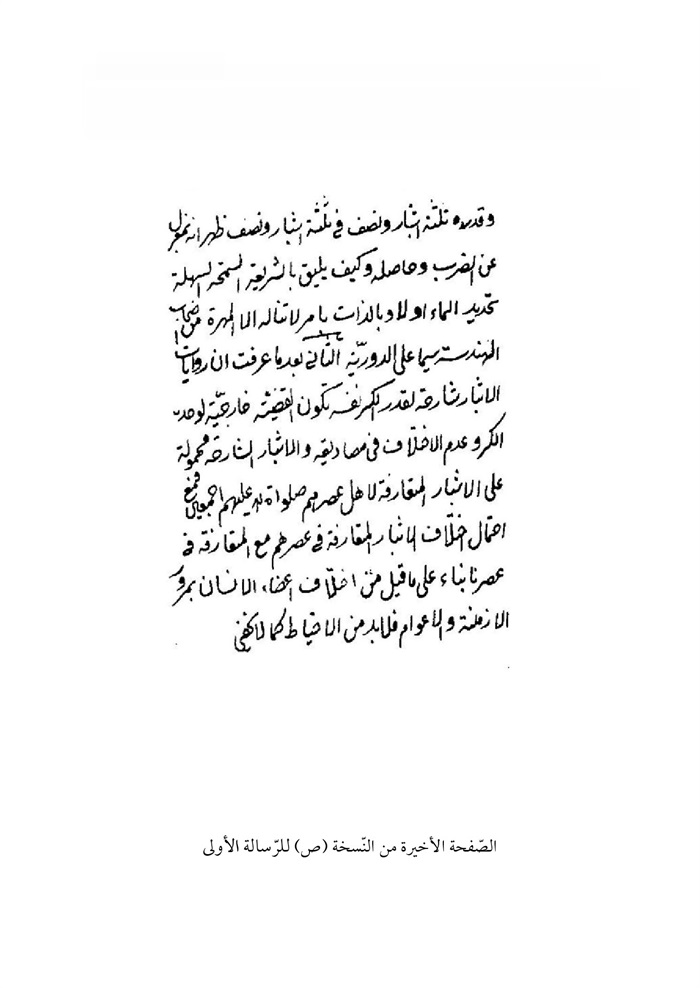 وقدره ثلثة اشبار ونصف في ثلثة اشبار ونصف ظهر انه بمعزل
عن الضرب وحاصله وكيف يليق بالشريعة السمحة السهلة
تحديد الماء اولا وبالذات بامر لا تناله الا المهرة من اصحاب
الهندسة سيما على الدورية الثاني بعد ما عرفت ان روايات
الاشبار شارحة لقدر الكر نفسه تكون القضية خارجية لوحدة
الكر وعدم الاختلاف في مصاديقه والاشبار الشارحة محمولة
على الاشبار المتعارفة لاهل عصرهم صلواة الله عليهم اجمعين فمع
احتمال اختلاف الاشبار المتعارفة في عصرهم مع المتعارفة في
عصرنا بناء على ما قيل من اختلاف اعضاء الانسان بمرور
الازمنة والاعوام فلابد من الاحتياط كما لا يخفى
الصّفحة الأخيرة من النّسخة (ص) للرّسالة الأولى